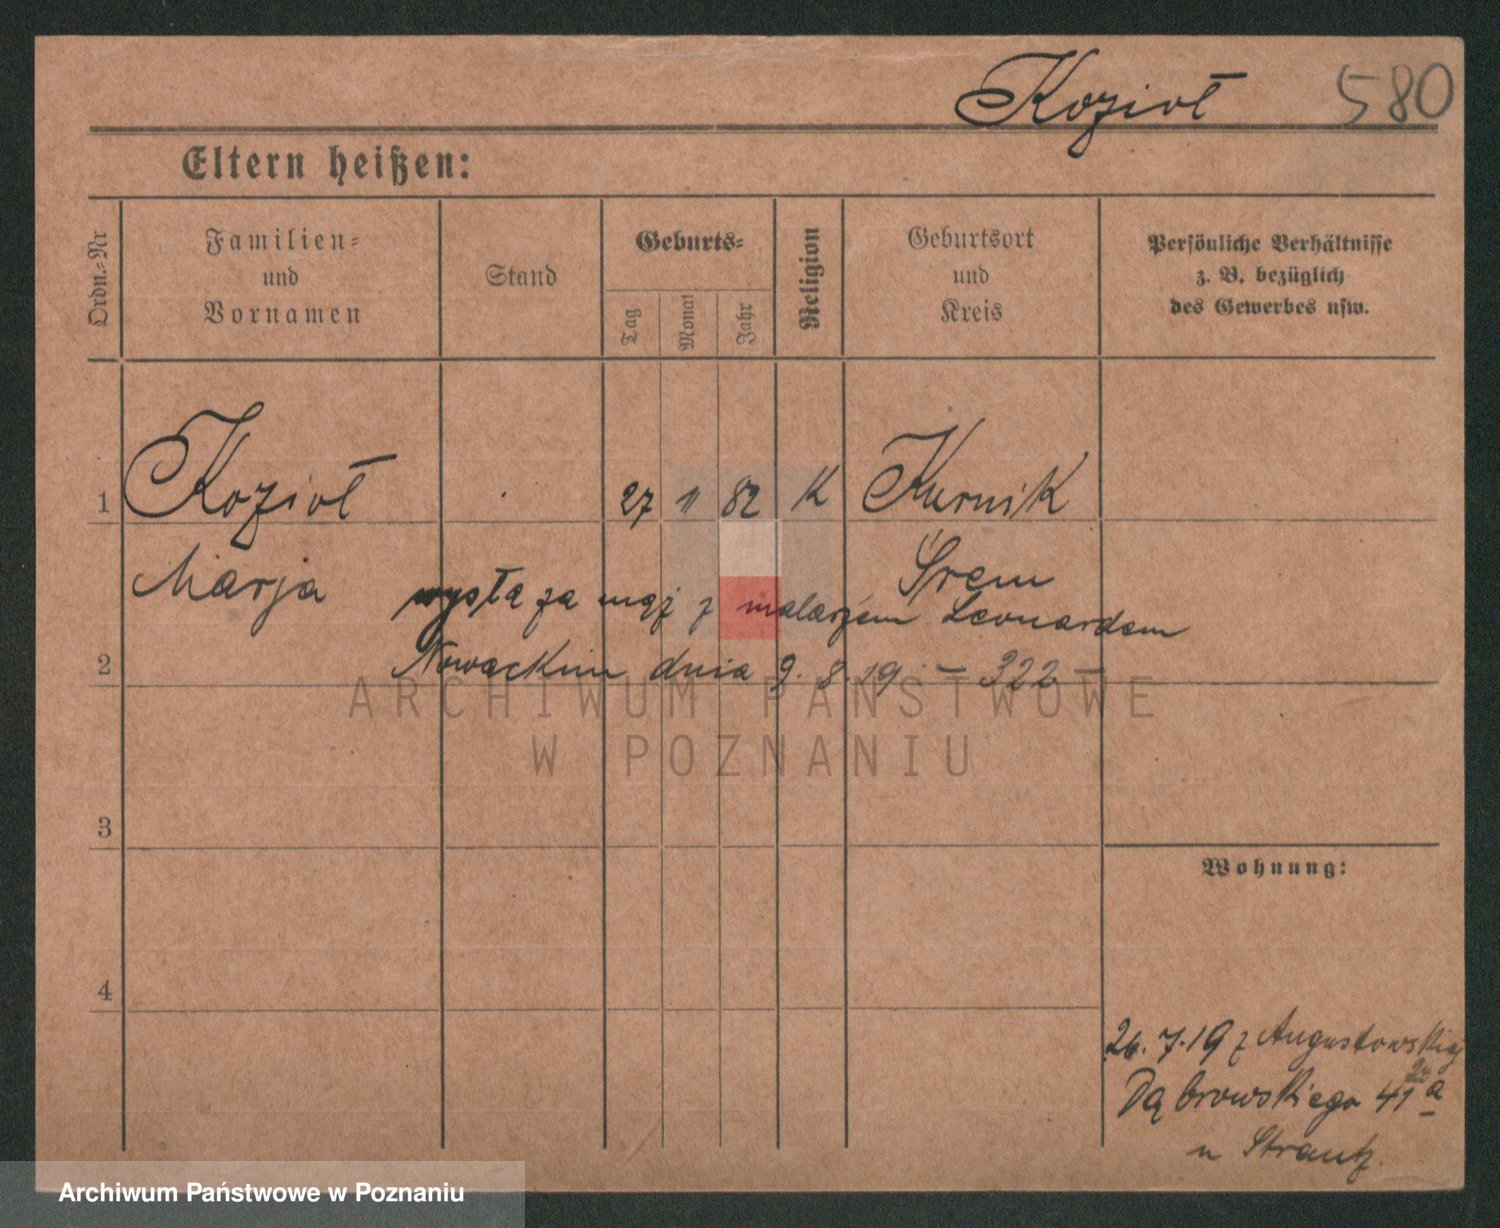 Kozioł 580
Eltern heißen:
Ordn.-Nr
Familien-
und
Vornamen
Stand
Geburts-
Tag
Monat
Jahr
Religion
Geburtsort
und
Kreis
Persönliche Verhältnisse
z. B. bezüglich
des Gewerbes usw.
1 Kozioł 27 11 82 K Kurnik
Marja Śrem
wyszła za mąż z malarzem Leonardem
2 Nowackim dnia 9. 8. 19 – 322 –
ARCHIWUM PAŃSTWOWE
W POZNANIU
3
Wohnung:
4
26. 7. 19 z Augustowskiej
Dąbrowskiego 41 a
u Strantz.
Archiwum Państwowe w Poznaniu